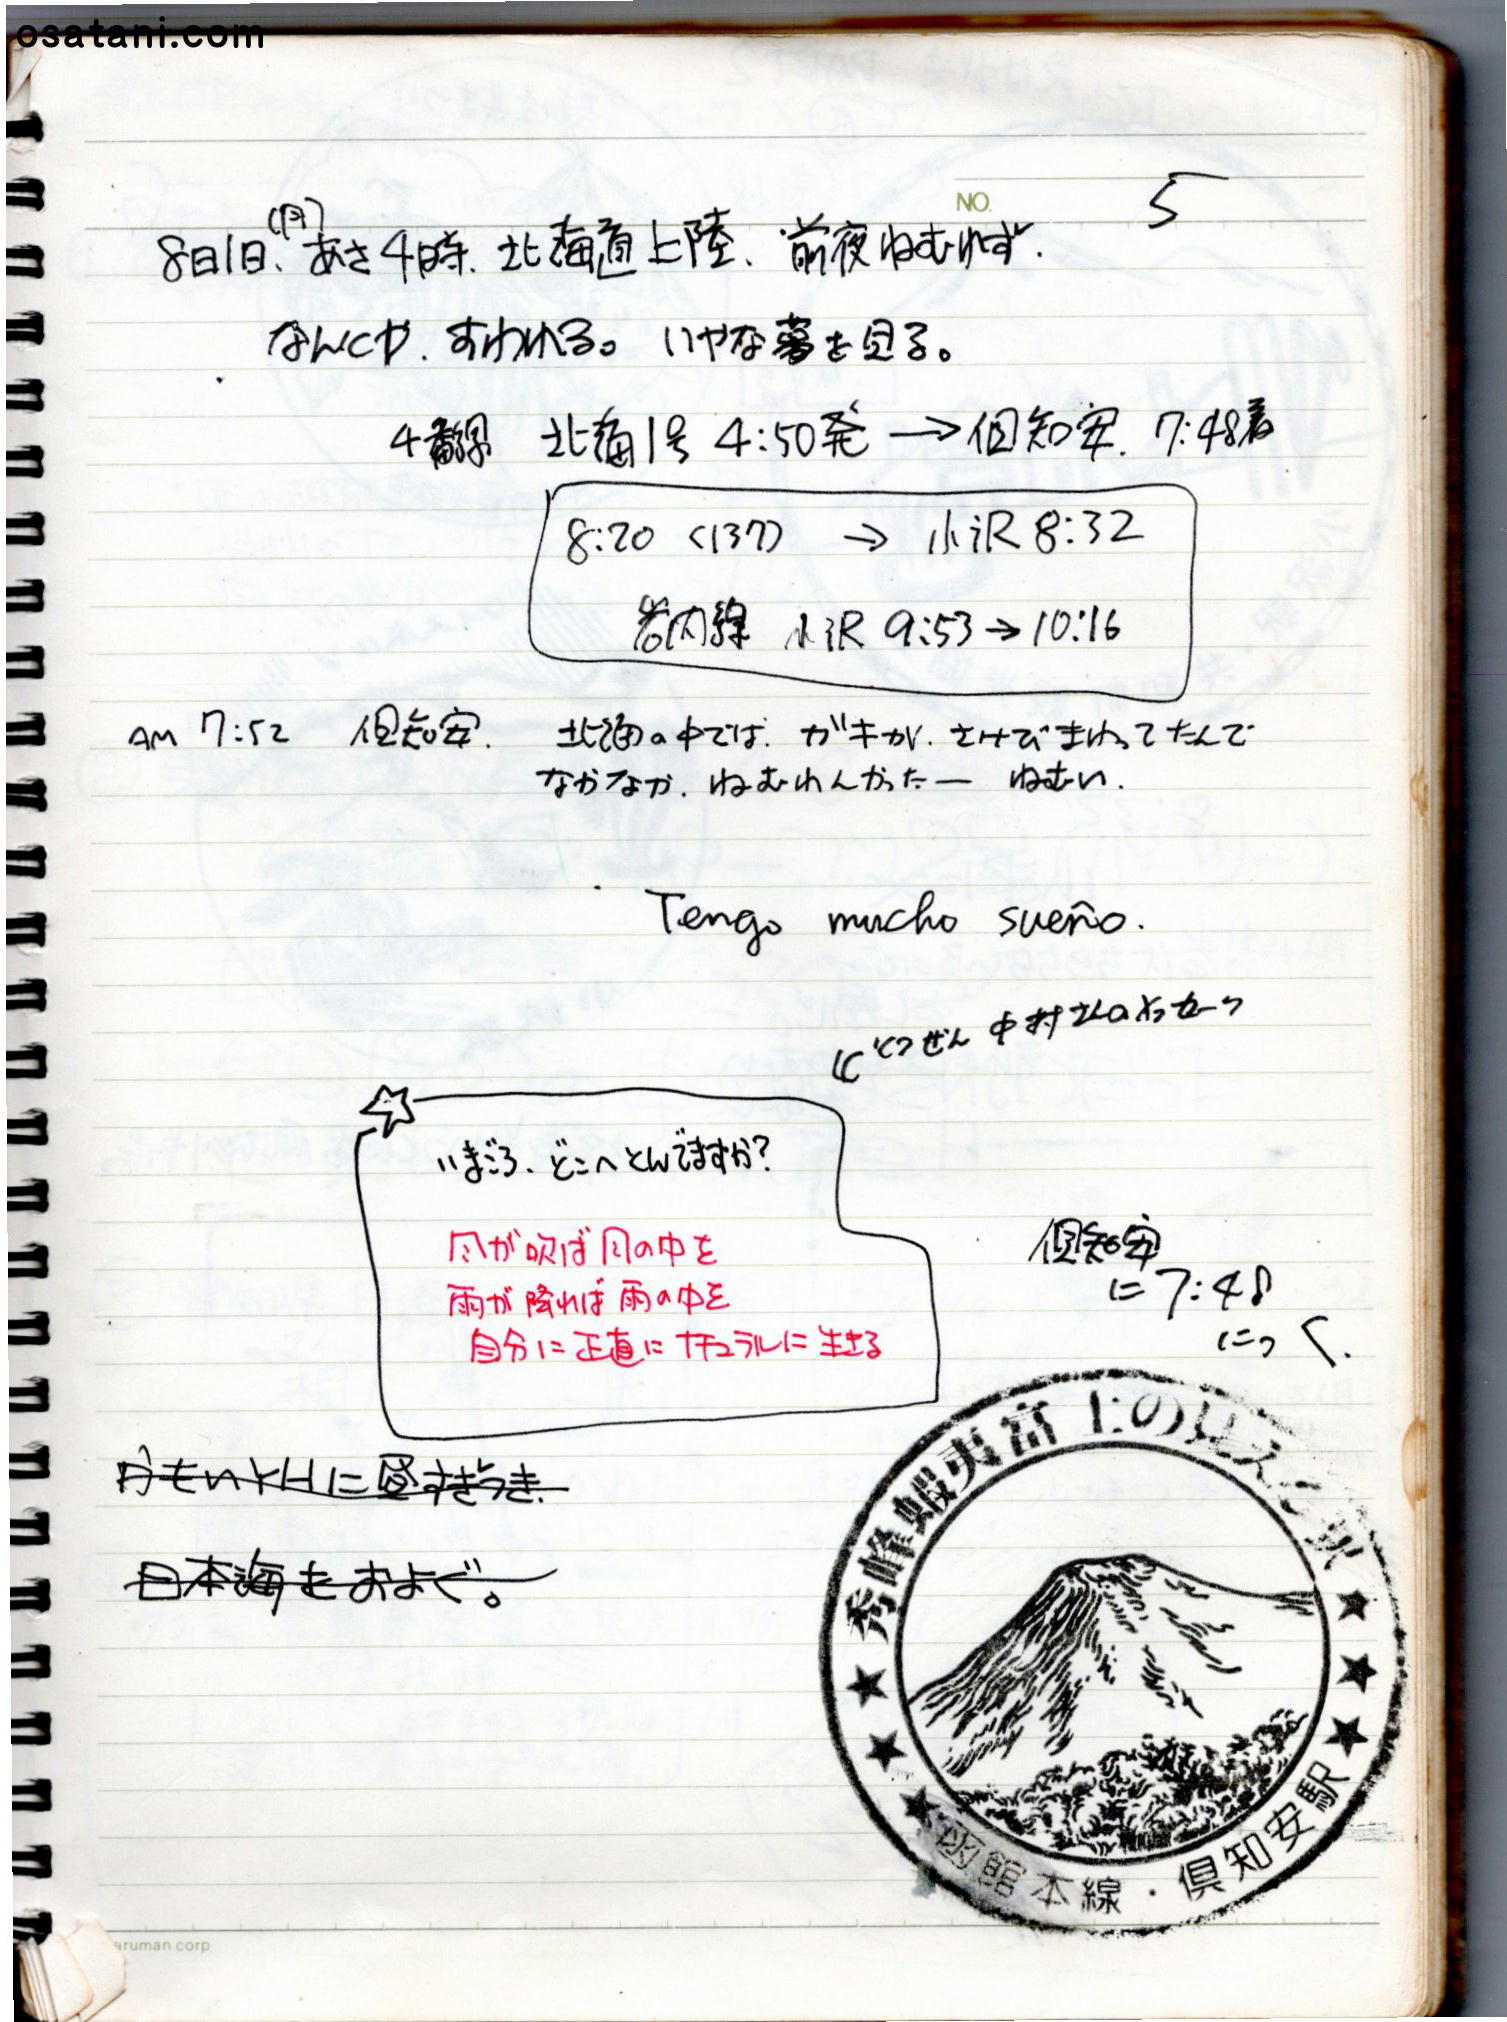 osatani.com
NO. 5
(月)
8日1日、あさ4時、北海道上陸、前夜ねむれず.
なんとか、すわれる。いやな夢を見る。
4番線 北海1号 4:50発 → 倶知安. 7:48着
8:20 (137) → 小沢 8:32
岩内線 小沢 9:53 → 10:16
AM 7:52 倶知安. 北海の中では、ガキが、さけびまわってたんで
なかなか、ねむれんかったー ねむい.
Tengo mucho sueño.
とつぜん 中村さんのメッセージ
いまごろ、どこへとんでますか?
風が吹けば 風の中を
雨が降れば 雨の中を
自分に正直に ナチュラルに 生きる
倶知安
に 7:48
につく.
カモイYHに昼すぎつき.
日本海をおよぐ。
秀峰蝦夷富士の見える駅
函館本線・倶知安駅
aruman corp